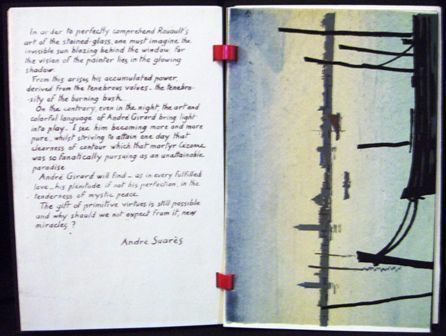 In order to perfectly comprehend Rouault's
art of the stained-glass, one must imagine the
invisible sun blazing behind the window, for
the vision of the painter lies in the glowing
shadow.
From this arises his accumulated power,
derived from the tenebrous values, the tenebro-
sity of the burning bush.
On the contrary, even in the night, the art and
colorful language of André Girard bring light
into play. I see him becoming more and more
pure, whilst striving to attain one day that
clearness of contour which that martyr Cézanne
was so fanatically pursuing as an unattainable
paradise.
André Girard will find _ as in every fulfilled
love _ his plenitude if not his perfection, in the
tenderness of mystic peace.
The gift of primitive virtues is still possible
and why should we not expect from it, new
miracles ?
André Suarès